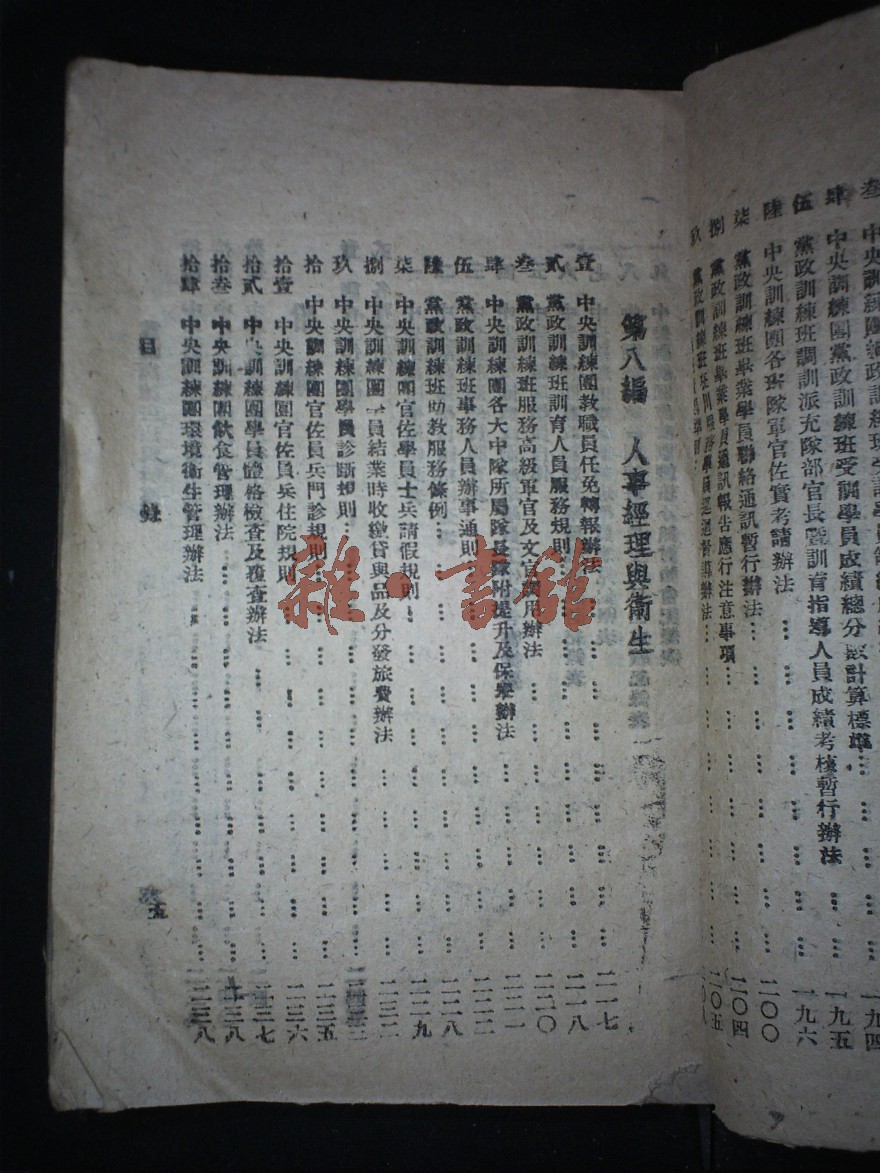 中央訓練團黨政訓練班受訓學員成績總分數計算標準⋯ 一九五
伍 黨政訓練班調訓派充隊部官長暨訓育指導人員成績考核暫行辦法 一九六
陸 中央訓練團各班隊軍官佐實考請辦法 二〇〇
柒 黨政訓練班畢業學員聯絡通訊暫行辦法 二〇四
捌 黨政訓練班畢業學員通訊報告應行注意事項 二〇五
第八編 人事經理與衛生
壹 中央訓練團教職員任免轉報辦法 二一七
貳 黨政訓練班訓育人員服務規則 二一八
叁 黨政訓練班服務高級軍官及文官 用辦法 二二〇
肆 中央訓練團各大中隊所屬隊長隊附提升及保舉辦法 二二一
伍 黨政訓練班事務人員辦事通則 二二二
陸 黨政訓練班助教服務條例 二二八
柒 中央訓練團官佐學員士兵請假規則 二二九
捌 中央訓練團學員結業時收繳貸與品及分發旅費辦法 二三二
玖 中央訓練團學員診斷規則
拾 中央訓練團官佐員兵門診規則 二三五
拾壹 中央訓練團官佐員兵住院規則 二三六
拾貳 中央訓練團學員體格檢查及覆查辦法 二三七
拾叁 中央訓練團飲食管理辦法 二三八
拾肆 中央訓練團環境衛生管理辦法 二三八
目 錄
雜·書館